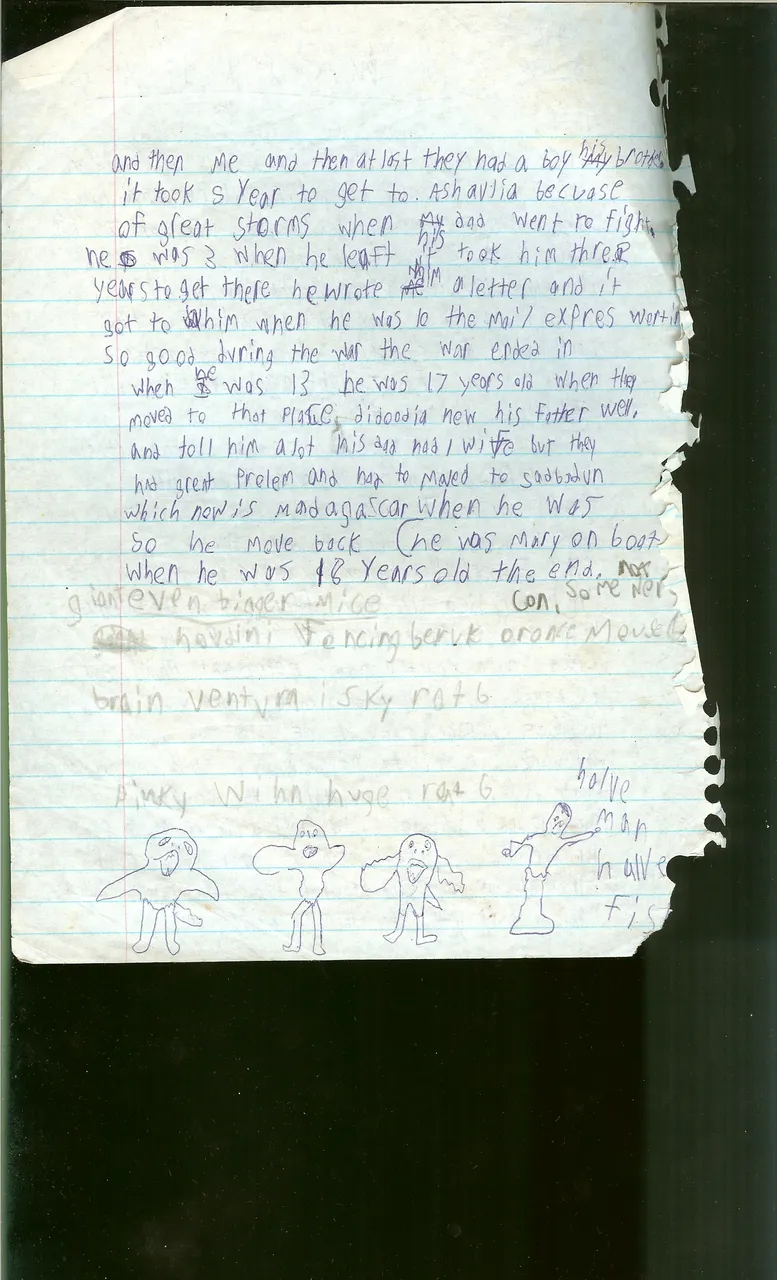 and then me and then at last they had a boy his brother
it took 5 Year to get to. Ashavlia becuase
of great storms when his dad went to fight.
he was 3 when he leaft it took him three
years to get there he wrote him a letter and it
got to him when he was 10 the mail expres workin
so good during the war the war ended in
when he was 13 he was 17 years old when they
moved to that place, didoodia new his Father well.
and toll him alot his dad had 1 wife but they
had great Prolem and had to moved to sadbadun
which now is madagascar when he was
so he move back (he was mary on boat
when he was 18 Years old the end. not
giant even bigger mice con, some
houdini Fencing
brain sky rat 6
pinky huge rat 6
halve
man
halve
fis